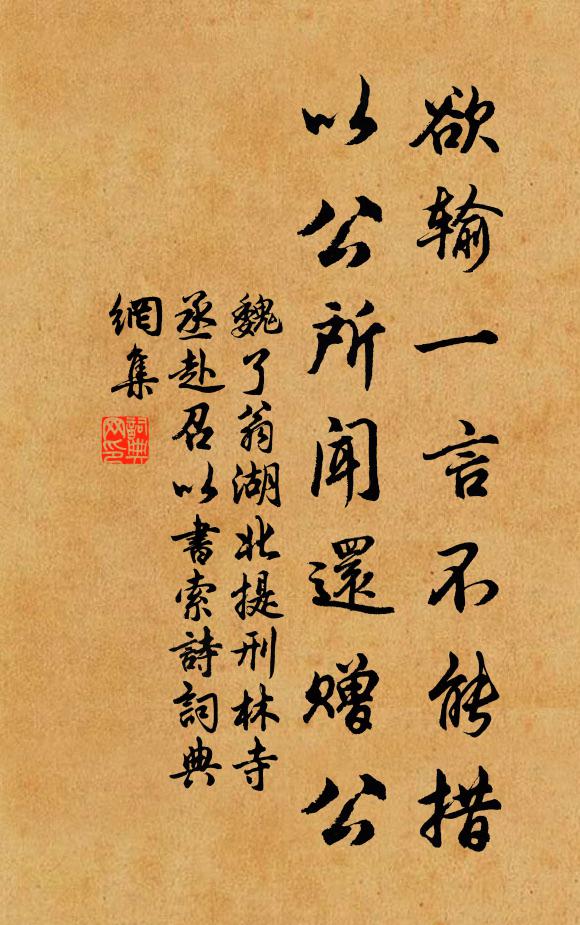 欲输一言不能措
以公所闻還赠公
魏了翁湖北提刑林寺
丞赴召以書索詩詞典
網集
詞典
网印